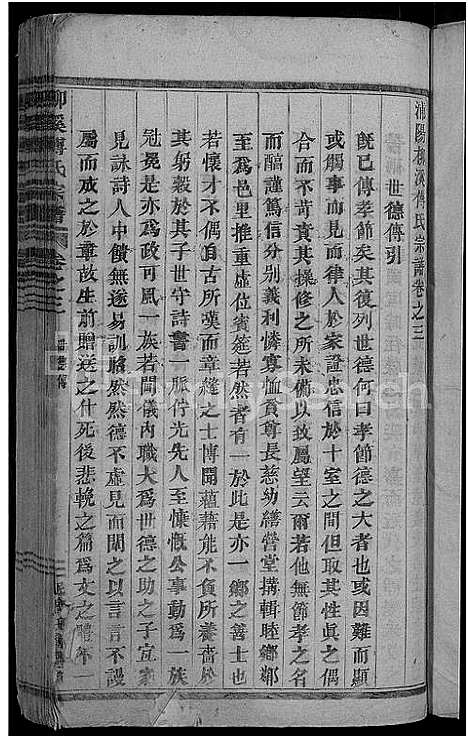 浦陽柳溪傅氏宗譜卷之三
世德傳引
既已傳孝節矣其復列世德何曰孝節德之大者也或因難而顯
或觸事而見而律人於家證忠信於十室之間但取其性眞之偶
合而不苛責其操修之所未備以致屬望云爾若他無節孝之名
而醕謹篤信分别義利憐寡恤貧尊長慈幼繕營堂搆輯睦鄉鄰
至為邑里推重虛位賓筵若然者有一於此是亦一鄉之善士也
若懷才不偶自古所嘆而章縫之士博聞蘊藉能不負所養嗇於
其躬穀於其子世守詩書一脈佇光先人至慷慨公事動為一族
冠冕是亦為政可風一族若閫儀內職大為世德之助之子宜家
見詠詩人中饋無遂易訓勝然然德不虛見而聞之以言言不謾
屬而成之於章故生前贈送之什死後悲輓之篇為文之體不一
柳溪傅氏宗譜
卷之三